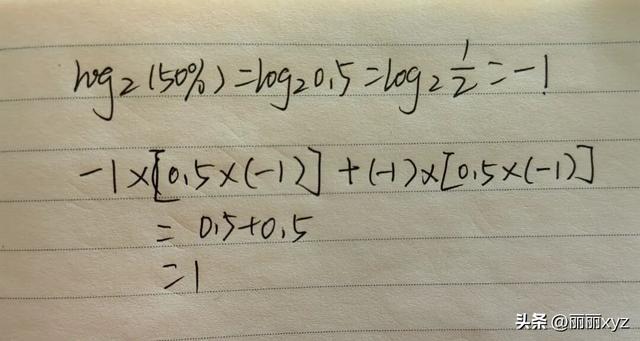 log₂(50%)=log₂0.5=log₂1/2=-1
-1×[0.5×(-1)]+(-1)×[0.5×(-1)]
=0.5+0.5
=1
头条 @丽丽xyz